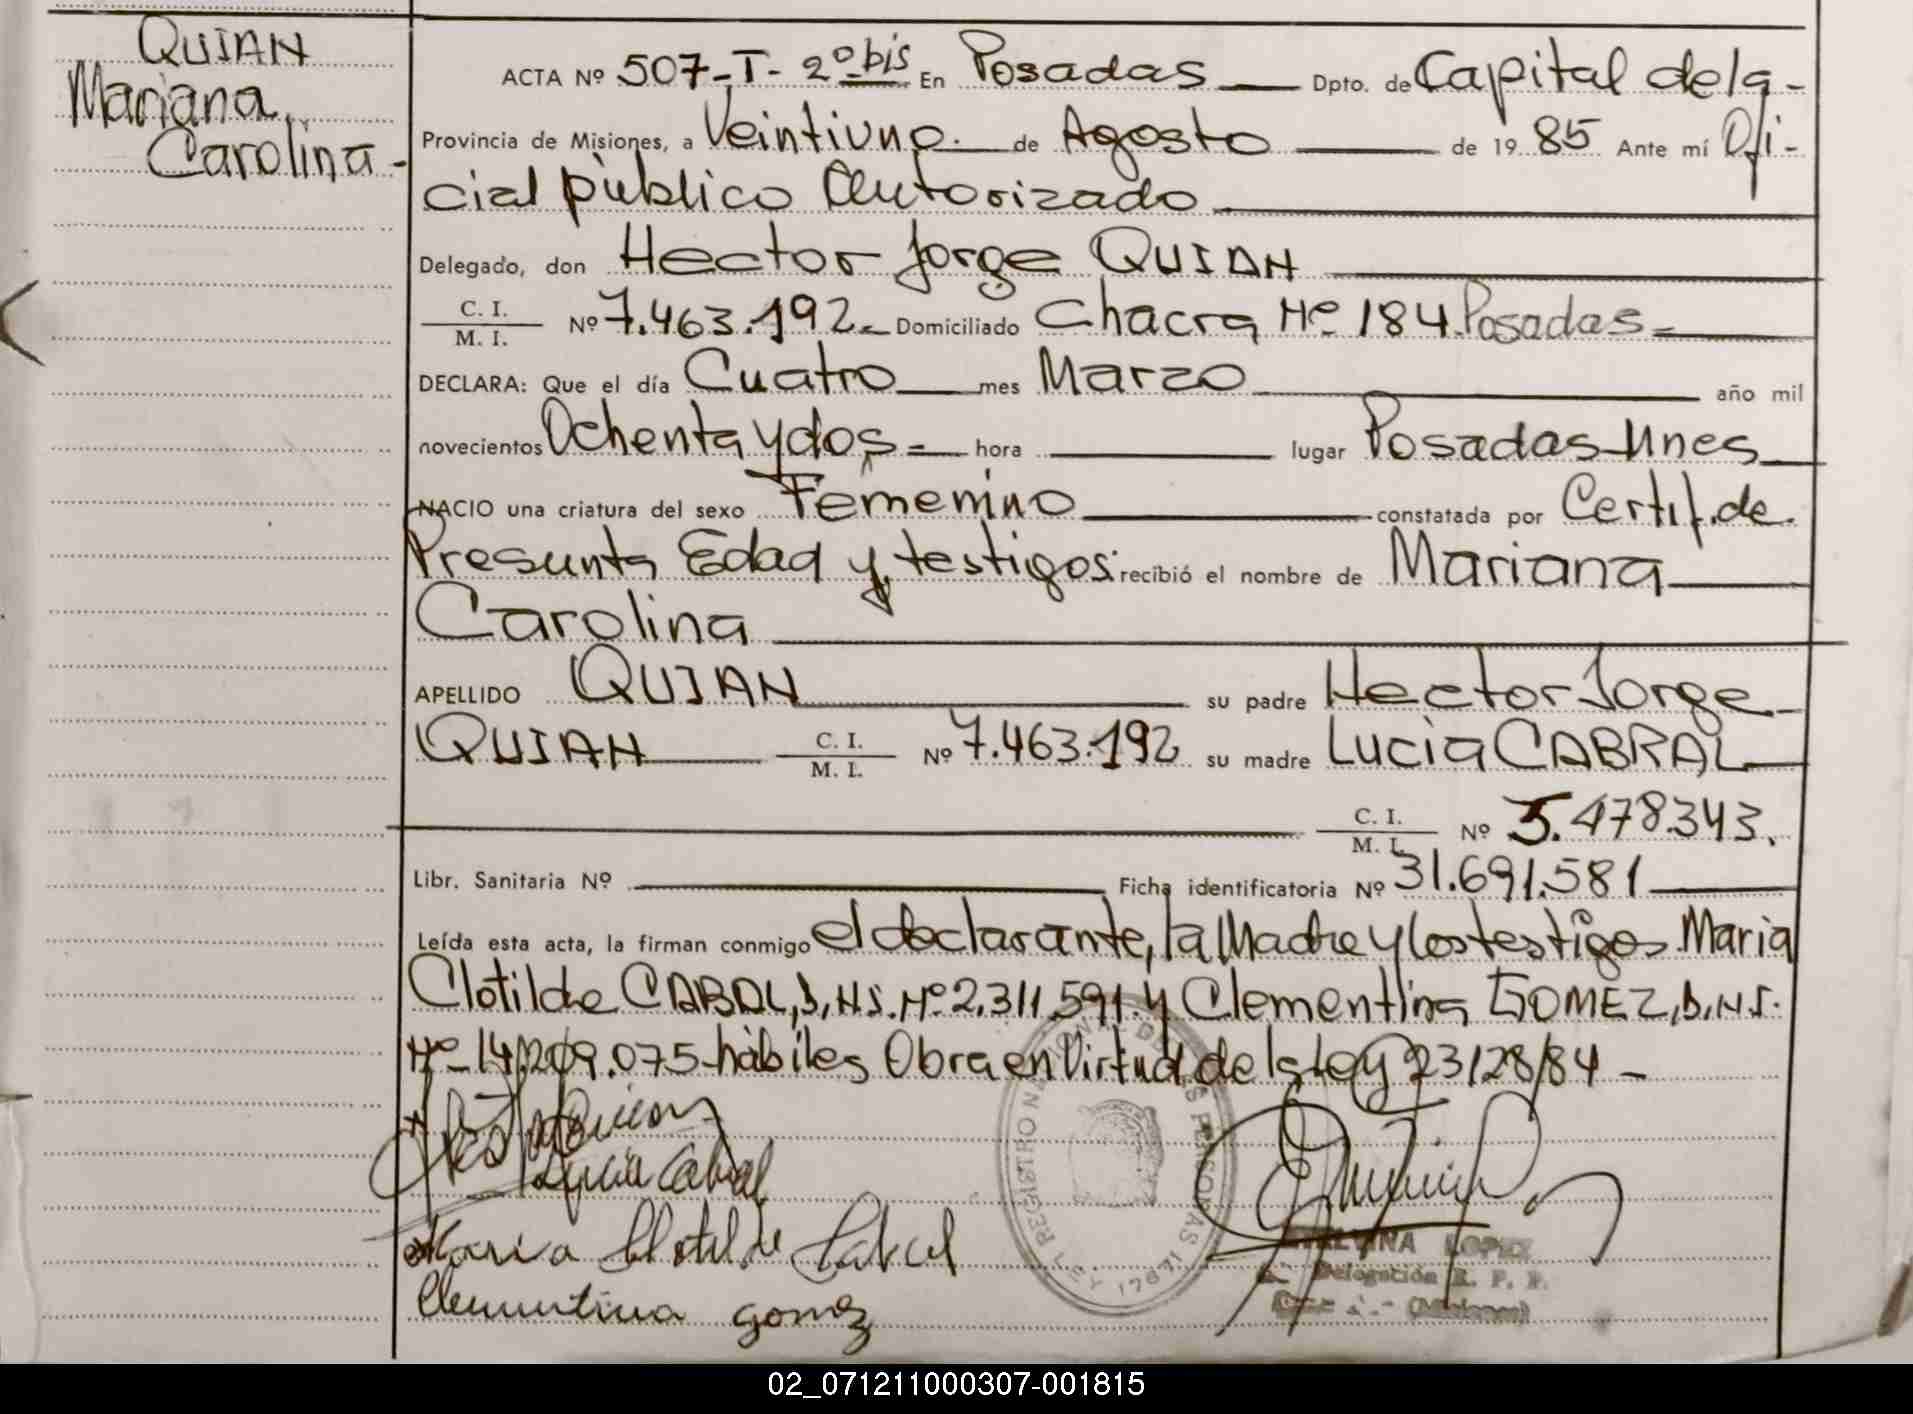 QUIAN
Mariana
Carolina-
ACTA Nº 507-T- 2º bis En Posadas Dpto. de Capital de la-
Provincia de Misiones, a Veintiuno. de Agosto de 1985 Ante mí Ofi-
cial público Autorizado
Delegado, don Hector Jorge QUIAN
C. I.
M. I. Nº 7.463.192.- Domiciliado Chacra Nº 184 Posadas-
DECLARA: Que el día Cuatro mes Marzo año mil
novecientos Ochenta y dos- hora lugar Posadas Mnes
NACIO una criatura del sexo Femenino constatada por Certif. de
Presunta Edad y testigos: recibió el nombre de Mariana
Carolina
APELLIDO QUIAN su padre Hector Jorge
QUIAN C. I. M. I. Nº 7.463.192 su madre Lucia CABRAL
C. I. M. I. Nº 5.478.343.
Libr. Sanitaria Nº Ficha identificatoria Nº 31.691.581
Leída esta acta, la firman conmigo el declarante, la Madre y los testigos Maria
Clotilde CABRAL, D.N.I. Nº 2.311.591 y Clementina GOMEZ, D.N.I.
Nº 14.209.075- hábiles Obra en Virtud de la ley 23128/84-
Lucia Cabral
Maria Clotilde Cabral
Clementina gomez
LOPEZ
Delegación R. P. P.
(Misiones)
02_071211000307-001815